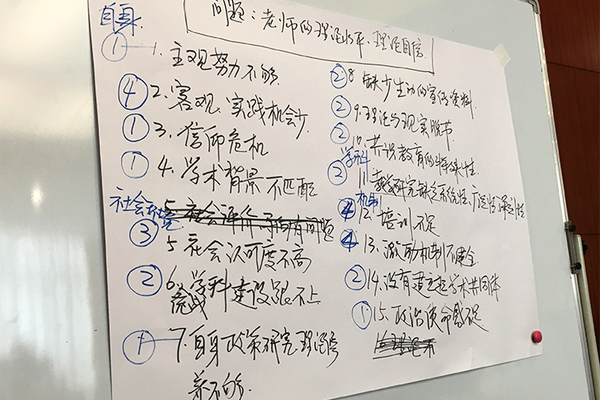 问题：老师的理论水平、理论自信
自身
① 1. 主观努力不够
④ 2. 客观、实践机会少
① 3. 信仰危机
① 4. 学术背景不匹配
社会环境
③ 5. 社会认可度不高
② 6. 学科建设跟不上
① 7. 自身政策研究理论
养不够.
② 8. 缺少生动的宣传资料
② 9. 理论与现实脱节
② 10. 共识教育的特殊性
学科
② 11. 教学研究缺乏系统性、
机制
④ 12. 培训不足
④ 13. 激励机制不健全
② 14. 没有建立起学术共同体
① 15. 政治使命感不足